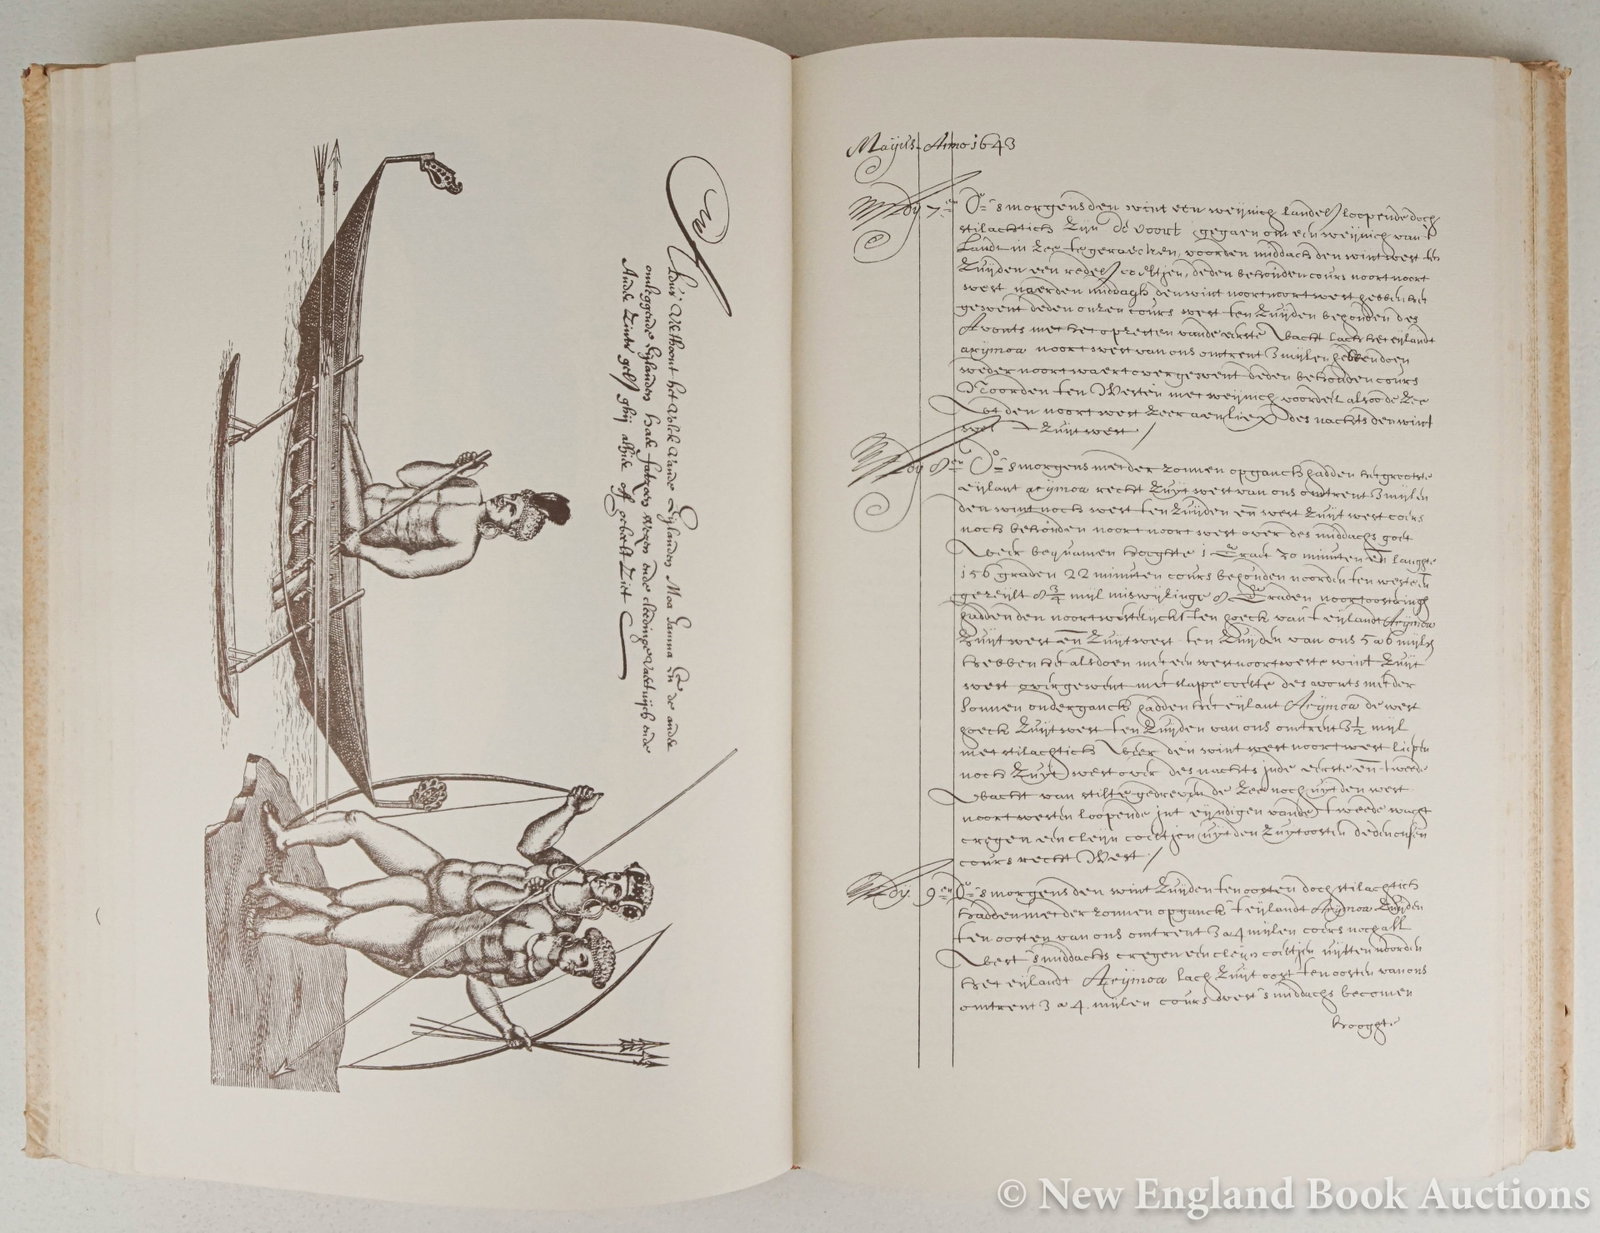 Aldus Verthoont het Volck Vande Eylanden Moa Jamna En de ander
omleggende Eylanden hare fatsoen wesen ende cleedinge Vaertuijch ende
Ander Tuich
Maijus Anno 1643
Ady 7.en Do smorgens den wint een weijnich landel. loopende doch
stilachtich zijn de voort gegaen om een weijnich van 't
Landt in zee te geraecken, voorden middach den wint west ten
Zuijden een redel. coeltjen, deden behouden cours noort noort
west naerden middagh den wint noortnoortwest hebben het
gewent deden onzen cours west ten Zuijden behouden des
Avonts met het opsetten vande eerste Wacht lach het eijlandt
arijmoa noortwest van ons omtrent 3 mijlen hebben doen
weder noortwaert overgewent deden behouden cours
Noorden ten Westen met weijnich voordeel alsoo de zee
uijt den noortwest zeer aenliep des nachts den wint
west Zuijtwest /
Ady 8.en Do smorgens met der zonnen opganch hadden het groote
eijlant arijmoa recht Zuijtwest van ons omtrent 3 mijlen
den wint noch west ten Zuijden en west Zuijtwest cours
noch behouden noort noort west over des middachs goet
Weer bequamen hooghte 1 Graet 30 minuten en langhte
156 graden 22 minuten cours behouden noorden ten westen
gezeijlt 8 3/4 mijl miswijsinge 8 Graden noortoostering
hadden den noortwestelijcksten hoeck van 't eijlandt Arijmoa
Zuijtwest en Zuijtwest ten Zuijden van ons 5 a 6 mijlen
hebben het alsdoen met een westnoortweste wint Zuijt
west overgewent met slappe coelte des avonts met der
sonnen onderganck hadden het eijlant Arijmoa de west
hoeck Zuijtwest ten Zuijden van ons omtrent 3 1/2 mijl
met stilachtich Weer den wint westnoortwest liepen
noch Zuijdwest over des nachts inde eerste en tweede
Wacht van stilte gedreven de zee noch uijt den west
noortwesten loopende int eijndigen vande tweede wacht
cregen een cleijn coeltjen uijt den Zuijtoosten deden onsen
cours recht West /
Ady. 9.en Do smorgens den wint Zuijden ten oosten doch stilachtich
hadden met der zonnen opganck 't eijlandt Arijmoa Zuijden
ten oosten van ons omtrent 3 a 4 mijlen cours noch all
West smiddachs cregen een cleijn coeltjen uijtten noorden
het eijlandt Arijmoa lach Zuijt oost ten oosten van ons
omtrent 3 a 4. mijlen cours west smiddachs becomen
hooghte
© New England Book Auctions